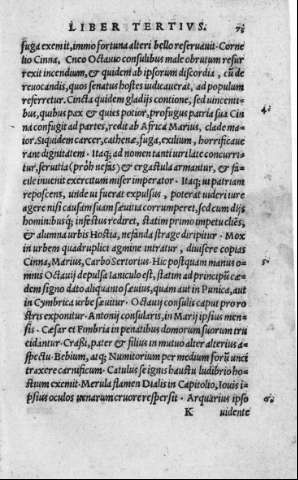 LIBER TERTIVS. 78
fuga exemit, immo fortuna alteri bello reseruauit. Corne
lio Cinna, Cneo Octauio consulibus male obrutum resur
rexit incendium, & quidem ab ipsorum discordia, cū de
reuocandis, quos senatus hostes iudicauerat, ad populum
referretur. Cincta quidem gladijs contione, sed uincenti-
bus, quibus pax & quies potior, profugus patria sua Cin
na confugit ad partes, redit ab Africa Marius, clade ma-
ior. Siquidem carcer, cathenæ, fuga, exilium, horrificaue
rant dignitatem. Itaq; ad nomen tanti uiri late concurri-
tur, seruitia (proh nefas) & ergastula armantur, & fa-
cile inuenit exercitum miser imperator. Itaq; ui patriam
reposcens, unde ui fuerat expulsus, poterat uideri iure
agere nisi causam suam sæuitia corrumperet, sed cum dijs
hominibusq́; infestus rediret, statim primo impetu cliēs,
& alumna urbis Hostia, nefanda strage diripitur. Mox
in urbem quadruplici agmine intratur, diuisere copias
Cinna, Marius, Carbo Sertorius. Hic postquam manus o-
mnis Octauij depulsa Ianiculo est, statim ad principū cæ-
dem signo dato aliquanto sæuius, quam aut in Punica, aut
in Cymbrica urbe sæuitur. Octauij consulis caput pro ro
stris exponitur. Antonij consularis, in Marij ipsius men-
sis. Cæsar et Fimbria in penatibus domorum suorum tru
cidantur. Crassi, pater & filius in mutuo alter alterius a-
spectu. Bebium, atq; Numitorium per medium forū unci
traxere carnificum. Catulus se ignis haustu ludibrio ho-
stium exemit. Merula flamen Dialis in Capitolio, Iouis i-
psius oculos uenarum cruore respersit. Anquarius ipso
K uidente